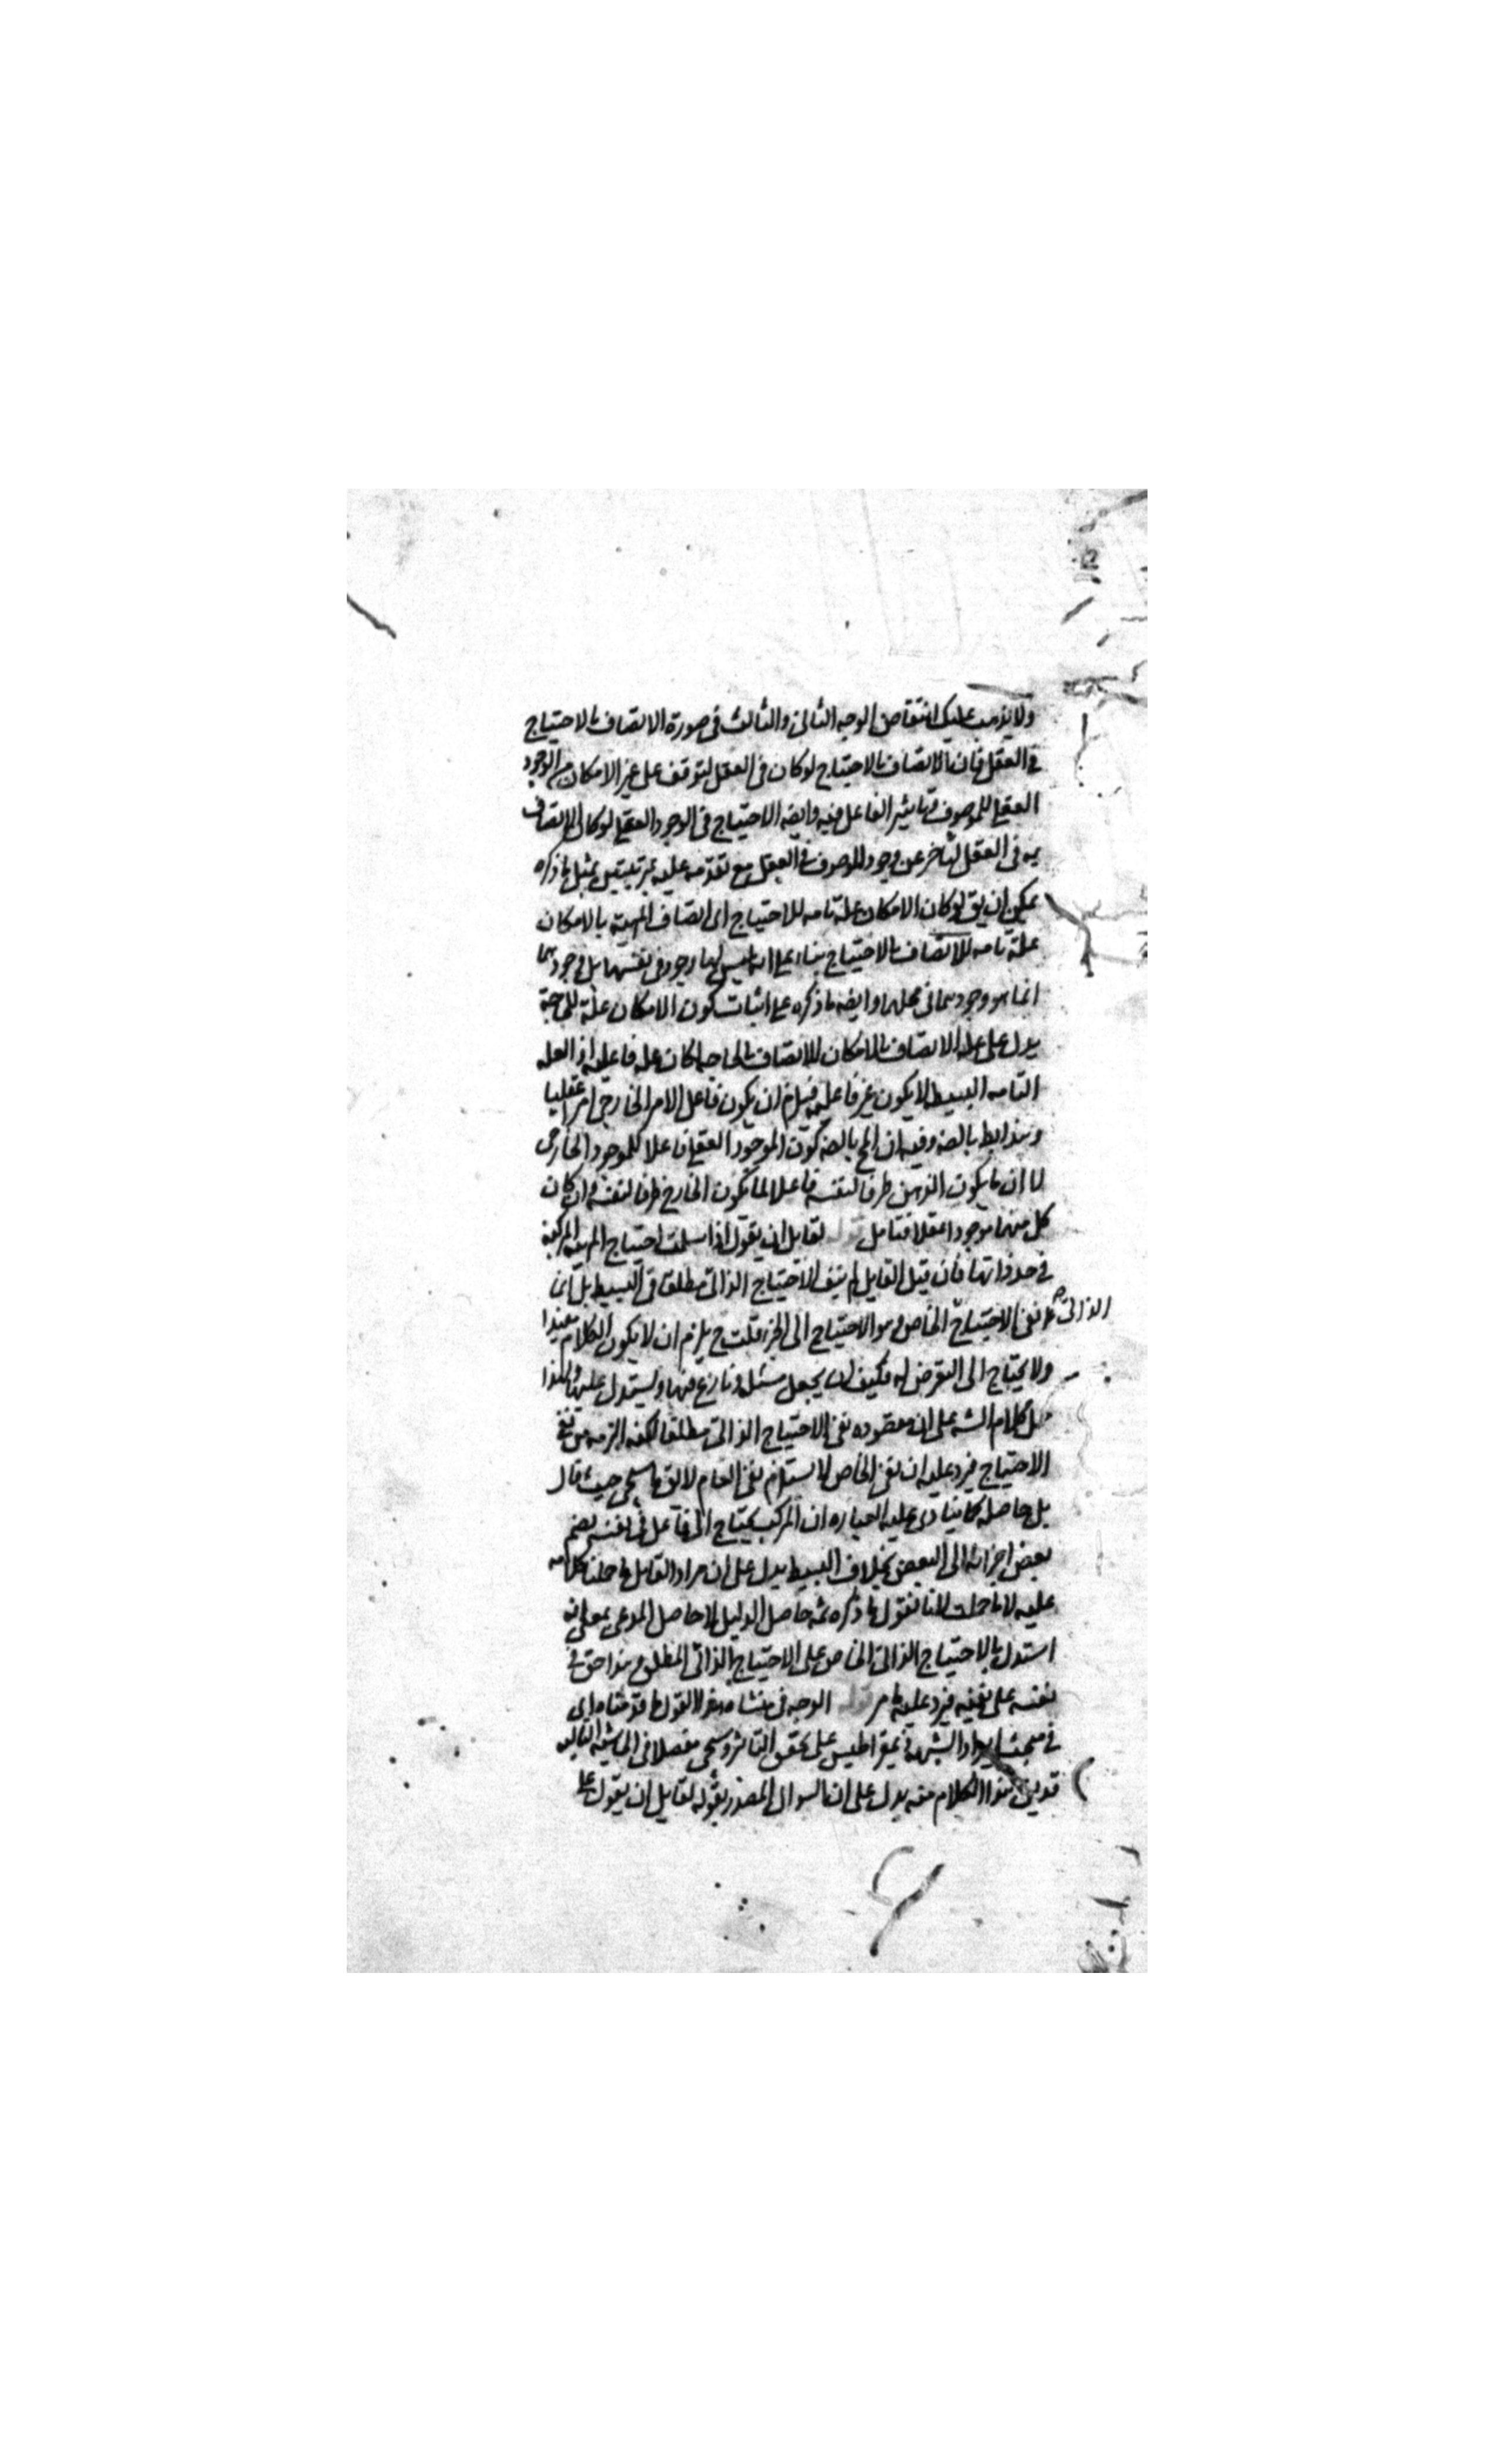 ولا يذهب عليك انتقاض الوجه الثانى والثالث فى صورة الاتصاف بالاحتياج
فى العقل فان الاتصاف بالاحتياج لو كان فى العقل لتوقف على غير الامكان من الوجود
العقلى للموصوف وتاثير الفاعل فيه وايضه الاحتياج فى الوجود العقلى لو كان للاتصاف
به فى العقل لتأخر عن وجود الموصوف فى العقل مع تقدمه عليه بمرتبتين بمثل ما ذكره
يمكن ان يق لو كان الامكان علة تامه للاحتياج اى اتصاف المهية بالامكان
علة تامه للاتصاف بالاحتياج بناء على انه ليس لهما وجود فى نفسهما بل وجودهما
انما هو وجودهما فى محلهما وايضه ما ذكره على اثبات كون الامكان علة للحاجة
يدل على علة الاتصاف بالامكان للاتصاف بالحاجه لكان علة فاعليه اذ العله
التامه البسيطه لا يكون غير فاعليه فيلزم ان يكون فاعل الامر الخارجى امرا عقليا
وهذا بط بالضه وفيه ان المح بالضه كون الموجود العقلى فاعلا للموجود الخارجى
لا ان ما يكون الذهن ظرفا لنفسه فاعلا لما يكون الخارج ظرفا لنفسه وان كان
كل منهما موجودا عقلا فتامل قوله لقايل ان يقول اذا سلمت احتياج المهيه المركبه
فى حد ذاتها فان قيل القايل لم ينف الاحتياج الذاتى مطلقا فى البسيط بل
الذاتى
نفى الاحتياج الخاص وهو الاحتياج الى الجزء قلت ح يلزم ان لا يكون الكلام مفيدا
ولا يحتاج الى التعرض له فكيف ان يجعل مسئلة ونازع فيها ويستدل عليها ولهذا
حمل كلام الشه على ان مقصوده نفى الاحتياج الذاتى مطلقا لكنه الزمه من نفى
الاحتياج فيرد عليه ان نفى الخاص لا يستلزم نفى العام لا يق ما سيجى حيث قال
بل حاصله كما ينادى عليه العباره ان المركب يحتاج الى فاعل فى نفسه يضم
بعض اجزائه الى البعض بخلاف البسيط يدل على ان مراد القايل ما حملنا كلامه
عليه لا ما حملت لانا نقول ما ذكره ثمه حاصل الدليل لا حاصل المدعى بمعنى انه
استدل بالاحتياج الذاتى الخاص على الاحتياج الذاتى المطلق وهذا حق فى
نفسه على نفيه فيرد عليه ما مر قوله الوجه فى منشاء هذا القول ما قدمناه اى
فى مبحث ايراد الشبهة ذيمقراطيس على تحقق التاثر وسيجى مفصلا فى الحاشيه التاليه
قدين هذا الكلام منه يدل على ان السوال المصدر بقوله لقايل ان يقول على